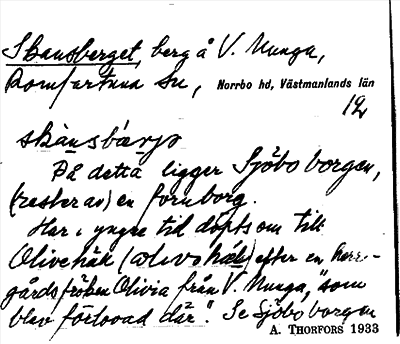 Skansberget, berg å V. Munga,
Romfartuna sn, Norrbo hd, Västmanlands län
12
skànsbärjə
På detta ligger Sjöbo borgen,
(rester av) en fornborg.
Har i yngre tid döpts om till
Olivehäk (                ) efter en herr-
gårdsfröken Olivia från V. Munga, "som
blev förlovad där". Se Sjöbo borgen
A. THORFORS 1933